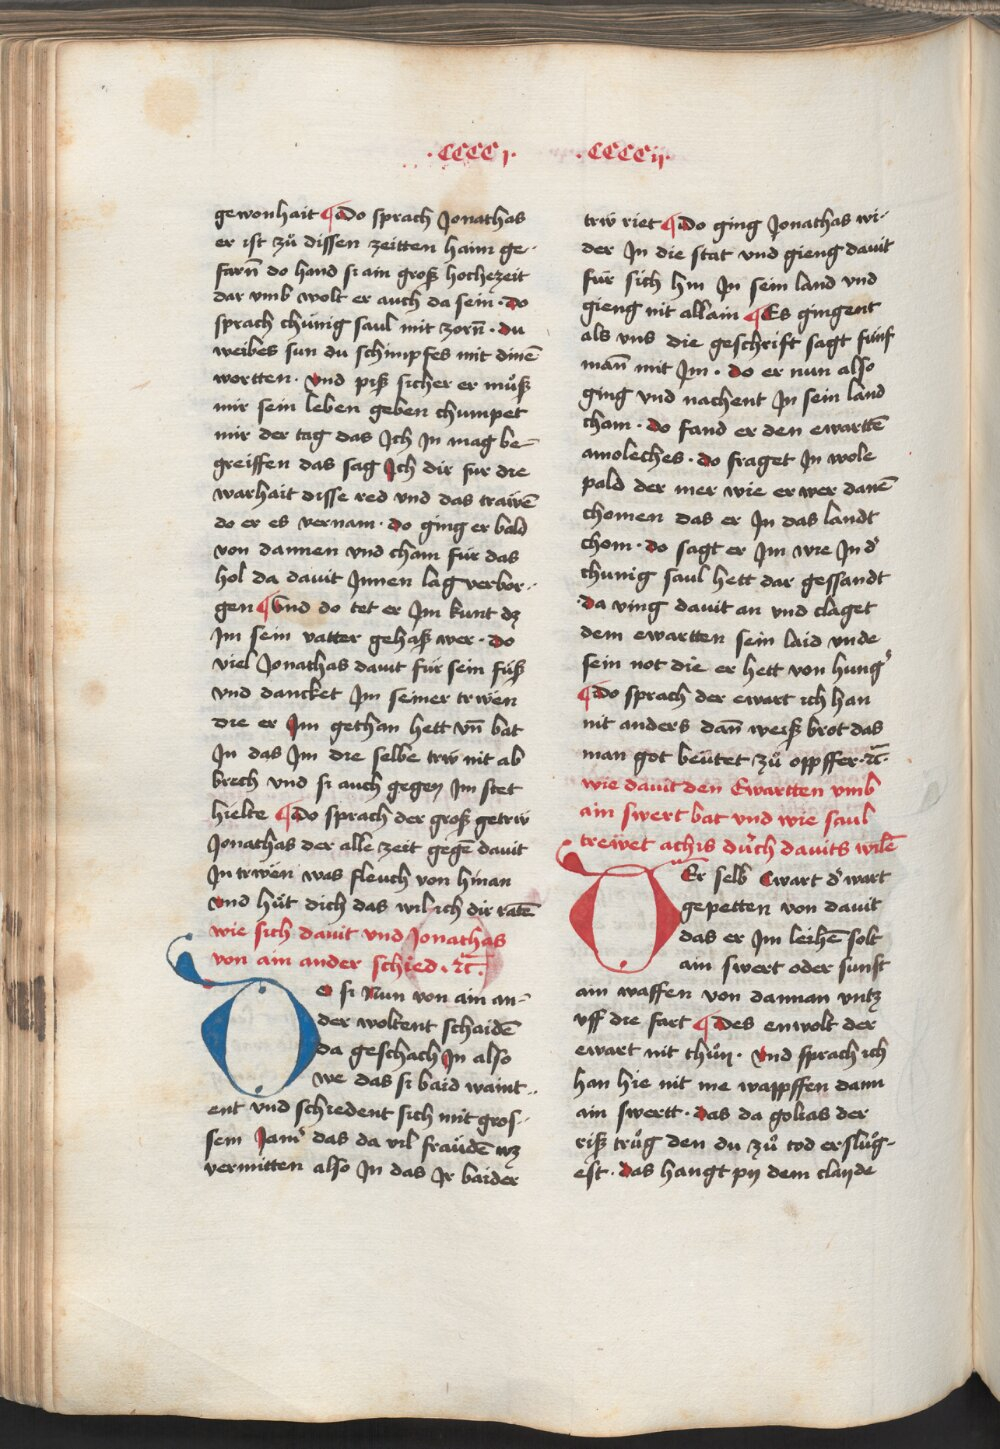 ·CCCCj·
gewonhait ¶ Do sprach Jonathas
er ist zů dissen zeitten haim ge-
farn̄ do hand si ain groß hochczeit
dar vmb wolt er auch da sein · do
sprach chünig saul mit zorn̄ · du
weibes sun du schimpfes mit dinē
wortten · Vnd piß sicher er můß
mir sein leben geben chumpet
mir der tag das Ich Jn mag be-
greiffen das sag Ich dir fur die
warhait disse red vnd das trawrē
do er es vernam · do ging er bald
von dannen vnd cham für das
hol da dauit Jnnen lag verbor-
gen ¶ Vnd do tet er Jm kunt dz
Jm sein vatter gehaß wer · do
viel Jonathas dauit für sein füß
vnd dancket Jm seiner trwen
die er Jm gethan hett vn̄ bat
Jn das Jm die selbe trw nit ab
brech vnd si auch gegen Jm stet
hielte ¶ Do sprach der groß getriw
Jonathas der alle zeit gegē dauit
Jn trwen was fleuch von hinan
vnd hüt dich das wil ich dir ratē
wie sich dauit vnd Jonathas
von ain ander schied · ꝛc̄ ·
Do si Nun von ain an-
der woltent schaidē
da geschach Jn also
we das si baid waint-
ent vnd schiedent sich mit gros-
sem Jamʼ das da vil fraüdē wz
vermitten also Jn das Jr baider
· CCCCij·
trw riet ¶ Do ging Jonathas wi-
der Jn die stat vnd gieng dauit
für sich hin Jn sein land vnd
gieng nit allain ¶ Es gingent
als vns die geschrift sagt fünf
man̄ mit Jm · do er nun also
ging vnd nachent Jn sein land
cham · do fand er den ewarttē
amoleches · do fraget Jn wole
pald der mer wie er wer danē
chomen das er Jn das landt
chom · do sagt er Jm wie Jn dʼ
chunig saul hett dar gessandt
· da ving dauit an vnd claget
dem ewartten sein laid vnde
sein not die er hett von hungʼ
¶ Do sprach der ewart ich han
nit anders dan̄ weiß brot das
man got beütet zů oppffer · ꝛc̄ ·
wie dauit den Ewartten vmb
ain swert bat vnd wie saul
trewet achis durch dauits wilē
DEr selb Ewart dʼ wart
gepetten von dauit
das er Jm leihē solt
ain swert oder sunst
ain waffen von dannan vntz
vff die fart ¶ Des enwolt der
ewart nit thůn · Vnd sprach ich
han hie nit me wappffen dann
ain swertt · das da golias der
riß trůg den du zů tod erslůg-
est · das hangt py dem clayde